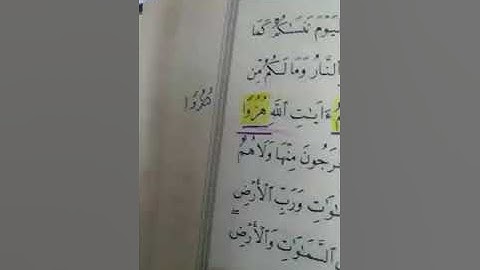 ٱلْيَوْمَ نَنسَىٰكُمْ كَمَا
ٱلنَّارُ وَمَا لَكُم مِّن
ءَايَٰتِ ٱللَّهِ هُزُوًا
هُزُوًا
يُخْرَجُونَ مِنْهَا وَلَا هُمْ
وَرَبِّ ٱلْأَرْضِ
ٱلسَّمَٰوَٰتِ وَٱلْأَرْضِ